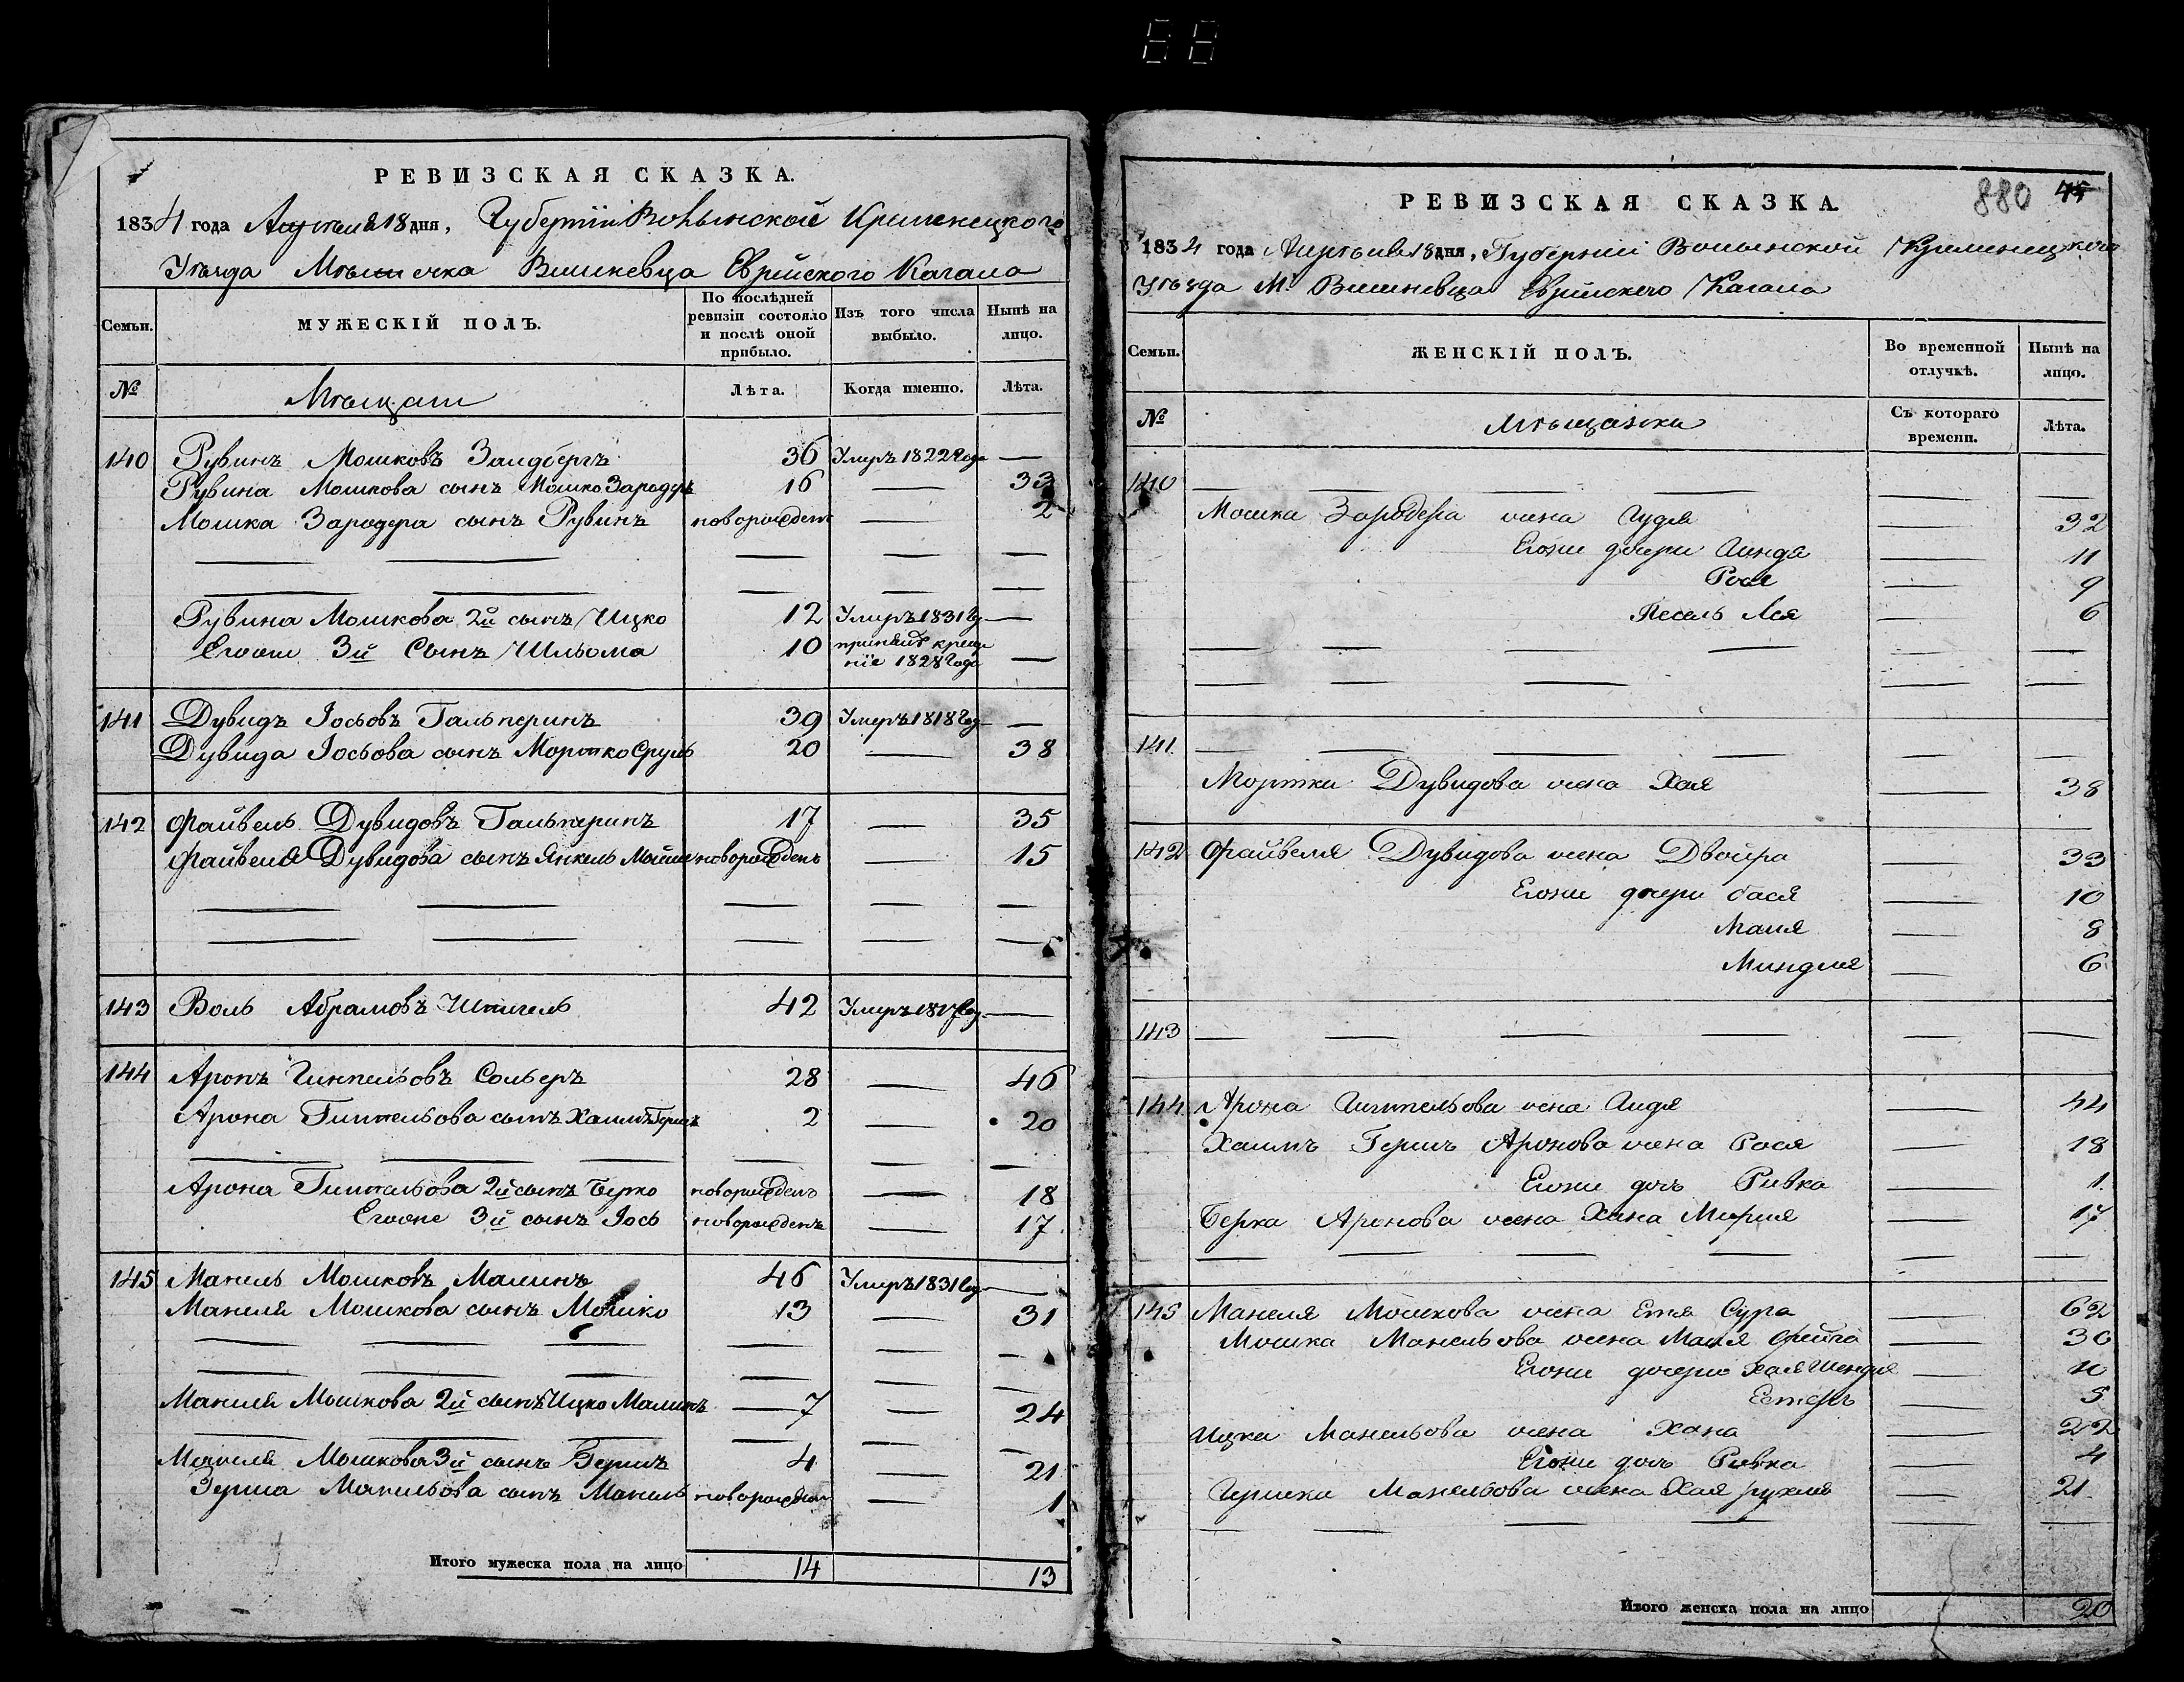 РЕВИЗСКАЯ СКАЗКА.
1834 года Апреля 18 дня, Губернiи Волынской Кременецкого
Уѣзда Мѣстечка Вишневца Еврейского Кагала
Семьи. МУЖЕСКІЙ ПОЛЪ. По послѣдней ревизіи состояло и послѣ оной прибыло. Изъ того числа выбыло. Нынѣ на лицо.
№ Мѣщане Лѣта. Когда именно. Лѣта.
140 Рувинъ Мошковъ Зандбергъ 36 Умеръ 1822 года —
Рувина Мошкова сынъ Мошко Зародеръ 16 — 33
Мошка Зародера сынъ Рувинъ новорожденъ — 2
Рувина Мошкова 2й сынъ Ицко 12 Умеръ 1831 —
Егоже 3й Сынъ Шльома 10 принялъ креще
ніе 1828 года —
141 Дувидъ Іосьовъ Гальперинъ 39 Умеръ 1818 год —
Дувида Іосьова сынъ Мортко Сруль 20 — 38
142 Файвель Дувидовъ Гальперинъ 17 — 35
Файвеля Дувидова сынъ Янкель новорожденъ — 15
143 Воль Абрамовъ 42 Умеръ —
144 Аронъ Гимпельовъ 28 — 46
Арона Гимпельова сынъ Хаимъ Гершъ 2 — 20
Арона Гимпельова 2й сынъ Берко новорожденъ — 18
Егоже 3й сынъ Іось новорожденъ — 17
145 Манель Мошковъ Малинъ 46 Умеръ 1831 год —
Манеля Мошкова сынъ Мошко 13 — 31
Манеля Мошкова 2й сынъ Ицко Малинъ 7 — 24
Манеля Мошкова 3й сынъ Гершъ 4 — 21
Герша Манельова сынъ Манель новорожденъ — 1
Итого мужеска пола на лицо 14 13
880 45
РЕВИЗСКАЯ СКАЗКА.
1834 года Апреля 18 дня, Губернiи Волынской Кременецкого
Уѣзда М. Вишневца Еврейского Кагала
Семьи. ЖЕНСКІЙ ПОЛЪ. Во временной отлучкѣ. Нынѣ на лицо.
№ Мѣщанки Съ котораго времени. Лѣта.
140
Мошка Зародера жена Гудя — 32
Егоже дочери Гиндя — 11
Рося — 9
Песель Лея — 6
141
Мортка Дувидова жена Хая — 38
142 Файвеля Дувидова жена Двойра — 33
Егоже дочери Бася — 10
Маля — 8
Миндля — 6
143
144 Арона Гимпельова жена — 44
Хаимъ Гершъ Аронова жена Рося — 18
Егоже дочь Ривка — 1
Берка Аронова жена Хана — 17
145 Манеля Мошкова жена Етя Сура — 62
Мошка Манельова жена Маля Фейга — 30
Егоже дочери Хая Шендля — 10
Естеръ — 5
Ицка Манельова жена Хана — 22
Егоже дочь Ривка — 4
Гершка Манельова жена Хая Рухля — 21
Итого женска пола на лицо 20